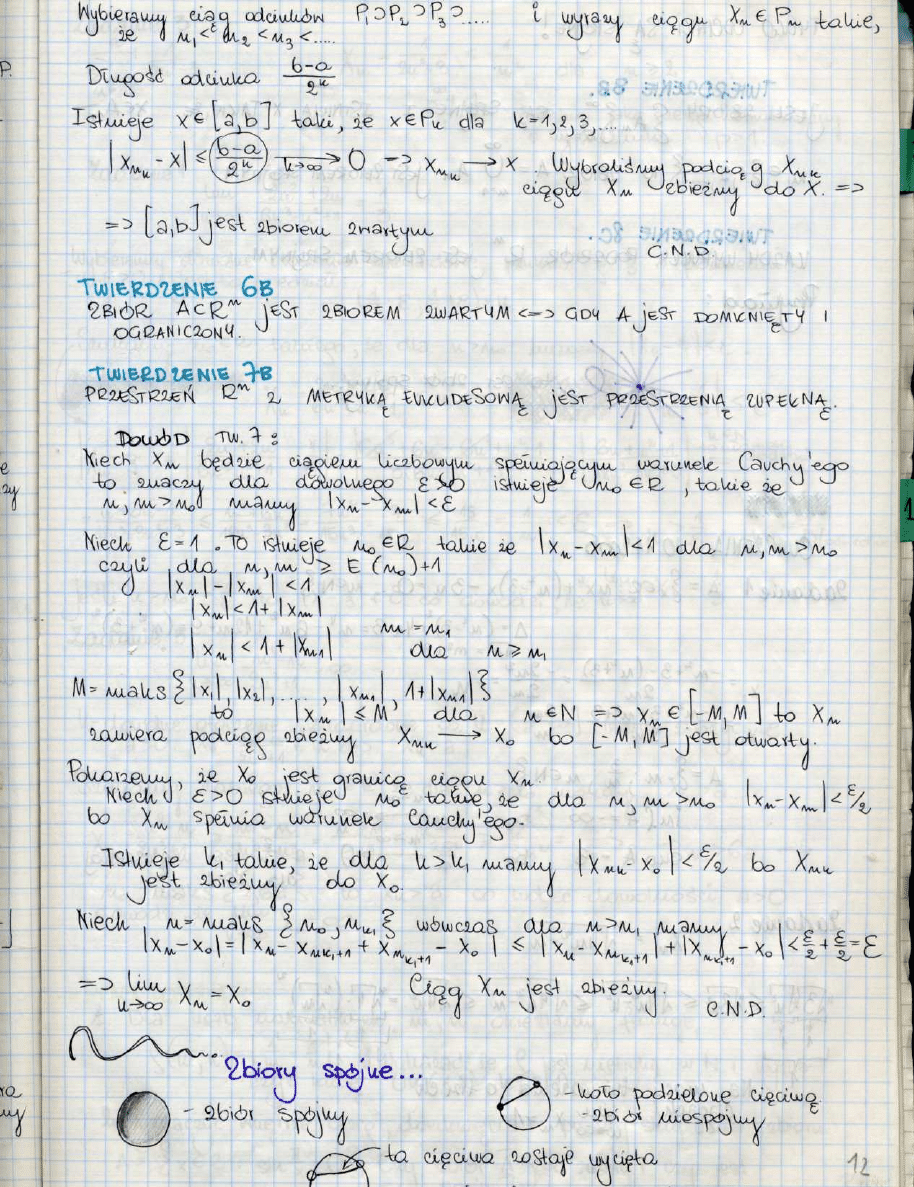 Wybieramy ciąg odcinków P₁⊃P₂⊃P₃⊃..... i wyrazy ciągu Xₙ∈Pₙ takie,
że n₁<n₂<n₃<.....
Długość odcinka (b-a)/2ᵏ
Istnieje x∈[a,b] taki, że x∈Pₖ dla k=1,2,3,....
|xₙₖ-x| ≤ (b-a)/2ᵏ →(k→∞) 0 => xₙₖ → x Wybraliśmy podciąg Xₙₖ
ciągu Xₙ zbieżny do X. =>
=> [a,b] jest zbiorem zwartym
C.N.D.
TWIERDZENIE 6B
ZBIÓR A⊂Rⁿ jEST ZBIOREM ZWARTYM <=> GDY A jEST DOMKNIĘTY I
OGRANICZONY.
TWIERDZENIE 7B
PRZESTRZEŃ Rⁿ Z METRYKĄ EUKLIDESOWĄ jEST PRZESTRZENIĄ ZUPEŁNĄ.
DOWÓD TW. 7:
Niech Xₙ będzie ciągiem liczbowym spełniającym warunek Cauchy'ego
to znaczy dla dowolnego ε>0 istnieje n₀∈R, takie że
n,m>n₀ mamy |Xₙ-Xₘ|<ε
Niech ε=1. To istnieje n₀∈R takie że |xₙ-xₘ|<1 dla n,m>n₀
czyli dla n,m ≥ E(n₀)+1
|Xₙ|-|Xₘ|<1
|Xₙ|<1+|Xₘ|
m=n₁
|Xₙ|<1+|Xₙ₁| dla n≥n₁
M=maks{|x₁|,|x₂|,....,|Xₙ₁|,1+|Xₙ₁|}
to |Xₙ|≤M dla n∈N => Xₙ∈[-M,M] to Xₙ
zawiera podciąg zbieżny Xₙₖ → X₀ bo [-M,M] jest otwarty.
Pokarzemy, że X₀ jest granicą ciągu Xₙ
Niech ε>0 istnieje n₀ takie, że dla n,m>n₀ |xₙ-xₘ|<ε/2
bo Xₙ spełnia warunek Cauchy'ego.
Istnieje k₁ takie, że dla k>k₁ mamy |Xₙₖ-X₀|<ε/2 bo Xₙₖ
jest zbieżny do X₀.
Niech n=maks{n₀,nₖ₁} wówczas dla n>n₁ mamy
|Xₙ-X₀|=|Xₙ-Xₙₖ₁₊₁+Xₙₖ₁₊₁-X₀| ≤ |Xₙ-Xₙₖ₁₊₁|+|Xₙₖ₁₊₁-X₀|<ε/2+ε/2=ε
=> lim n→∞ Xₙ=X₀ Ciąg Xₙ jest zbieżny.
C.N.D.
Zbiory spójne...
- zbiór spójny
- koło podzielone cięciwą
- zbiór niespójny
ta cięciwa zostaje wycięta
12